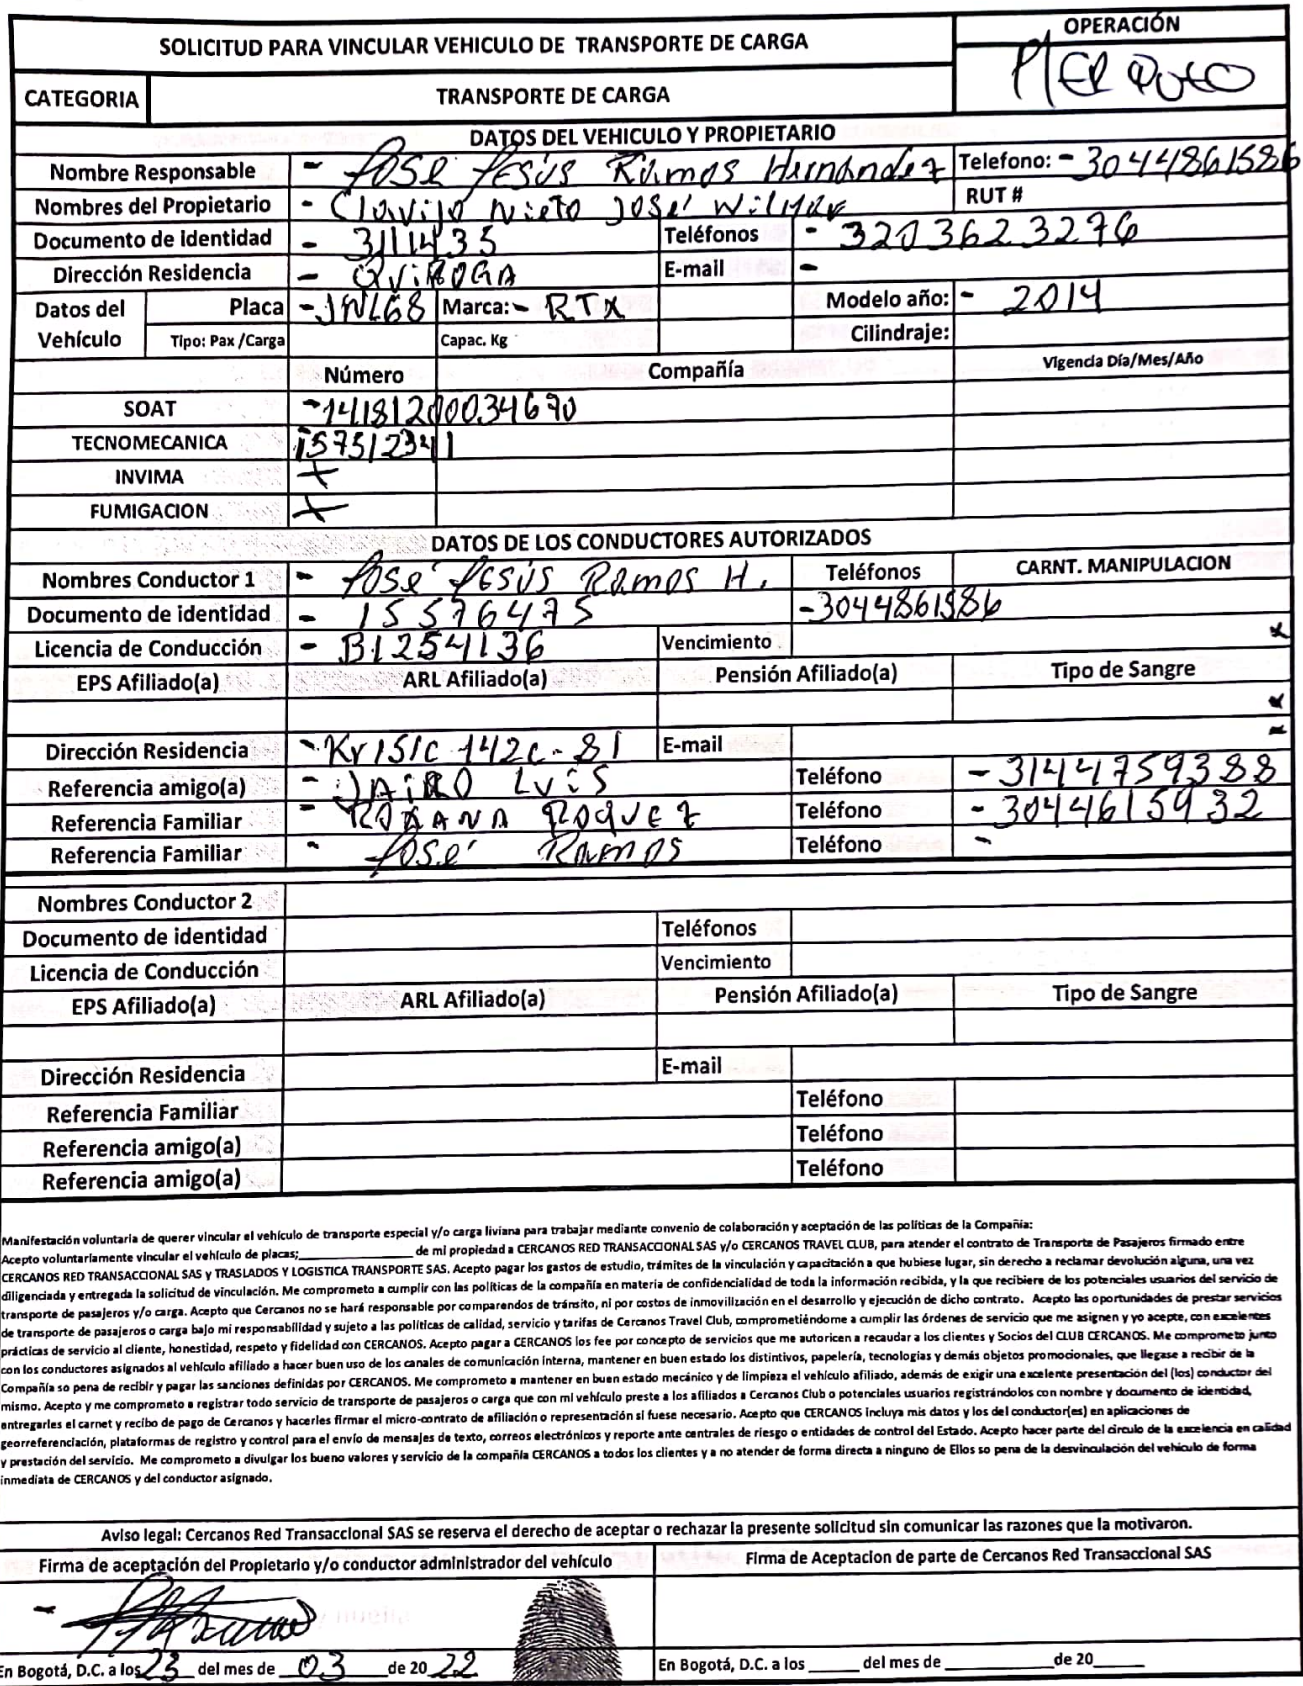 SOLICITUD PARA VINCULAR VEHICULO DE TRANSPORTE DE CARGA
OPERACIÓN
CATEGORIA TRANSPORTE DE CARGA
DATOS DEL VEHICULO Y PROPIETARIO
Nombre Responsable - José Jesús Ramos Hernández Telefono: - 3044861586
Nombres del Propietario - Clavijo Nieto José Wilmar RUT #
Documento de identidad - 3111435 Teléfonos - 3203623276
Dirección Residencia - QViROGA E-mail -
Datos del Vehículo Placa - JNL68 Marca: - RTX Modelo año: - 2014
Tipo: Pax /Carga Capac. Kg Cilindraje:
Número Compañía Vigencia Día/Mes/Año
SOAT - 14181200034690
TECNOMECANICA 157512341
INVIMA +
FUMIGACION +
DATOS DE LOS CONDUCTORES AUTORIZADOS
Nombres Conductor 1 - José Jesús Ramos H. Teléfonos CARNT. MANIPULACION
Documento de identidad - 15576475 - 3044861586
Licencia de Conducción - B1254136 Vencimiento x
EPS Afiliado(a) ARL Afiliado(a) Pensión Afiliado(a) Tipo de Sangre
x
Dirección Residencia - Kr 151C 142c - 81 E-mail -
Referencia amigo(a) - JAiRO LviS Teléfono - 3144759388
Referencia Familiar - ROXANA ROQUEZ Teléfono - 3044615932
Referencia Familiar - José Ramos Teléfono -
Nombres Conductor 2
Documento de identidad Teléfonos
Licencia de Conducción Vencimiento
EPS Afiliado(a) ARL Afiliado(a) Pensión Afiliado(a) Tipo de Sangre
Dirección Residencia E-mail
Referencia Familiar Teléfono
Referencia amigo(a) Teléfono
Referencia amigo(a) Teléfono
Manifestación voluntaria de querer vincular el vehículo de transporte especial y/o carga liviana para trabajar mediante convenio de colaboración y aceptación de las políticas de la Compañía:
Acepto voluntariamente vincular el vehículo de placas;__________________ de mi propiedad a CERCANOS RED TRANSACCIONAL SAS y/o CERCANOS TRAVEL CLUB, para atender el contrato de Transporte de Pasajeros firmado entre
CERCANOS RED TRANSACCIONAL SAS y TRASLADOS Y LOGISTICA TRANSPORTE SAS. Acepto pagar los gastos de estudio, trámites de la vinculación y capacitación a que hubiese lugar, sin derecho a reclamar devolución alguna, una vez
diligenciada y entregada la solicitud de vinculación. Me comprometo a cumplir con las políticas de la compañía en materia de confidencialidad de toda la información recibida, y la que recibiere de los potenciales usuarios del servicio de
transporte de pasajeros y/o carga. Acepto que Cercanos no se hará responsable por comparendos de tránsito, ni por costos de inmovilización en el desarrollo y ejecución de dicho contrato. Acepto las oportunidades de prestar servicios
de transporte de pasajeros o carga bajo mi responsabilidad y sujeto a las políticas de calidad, servicio y tarifas de Cercanos Travel Club, comprometiéndome a cumplir las órdenes de servicio que me asignen y yo acepte, con excelentes
prácticas de servicio al cliente, honestidad, respeto y fidelidad con CERCANOS. Acepto pagar a CERCANOS los fee por concepto de servicios que me autoricen a recaudar a los clientes y Socios del CLUB CERCANOS. Me comprometo junto
con los conductores asignados al vehículo afiliado a hacer buen uso de los canales de comunicación interna, mantener en buen estado los distintivos, papelería, tecnologías y demás objetos promocionales, que llegase a recibir de la
Compañía so pena de recibir y pagar las sanciones definidas por CERCANOS. Me comprometo a mantener en buen estado mecánico y de limpieza el vehículo afiliado, además de exigir una excelente presentación del (los) conductor del
mismo. Acepto y me comprometo a registrar todo servicio de transporte de pasajeros o carga que con mi vehículo preste a los afiliados a Cercanos Club o potenciales usuarios registrándolos con nombre y documento de identidad,
entregarles el carnet y recibo de pago de Cercanos y hacerles firmar el micro-contrato de afiliación o representación si fuese necesario. Acepto que CERCANOS incluya mis datos y los del conductor(es) en aplicaciones de
georreferenciación, plataformas de registro y control para el envío de mensajes de texto, correos electrónicos y reporte ante centrales de riesgo o entidades de control del Estado. Acepto hacer parte del circulo de la excelencia en calidad
y prestación del servicio. Me comprometo a divulgar los bueno valores y servicio de la compañía CERCANOS a todos los clientes y a no atender de forma directa a ninguno de Ellos so pena de la desvinculación del vehículo de forma
inmediata de CERCANOS y del conductor asignado.
Aviso legal: Cercanos Red Transaccional SAS se reserva el derecho de aceptar o rechazar la presente solicitud sin comunicar las razones que la motivaron.
Firma de aceptación del Propietario y/o conductor administrador del vehículo Firma de Aceptacion de parte de Cercanos Red Transaccional SAS
En Bogotá, D.C. a los 23 del mes de 03 de 20 22 En Bogotá, D.C. a los _____ del mes de ________ de 20_____